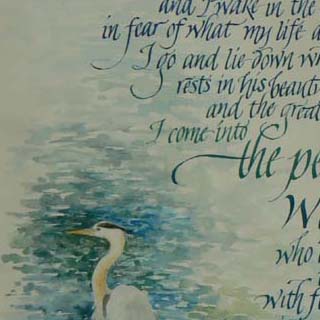 and I wake in the
in fear of what my life a
I go and lie down wh
rests in his beauti
and the great
I come into
the pe
W
who
with f